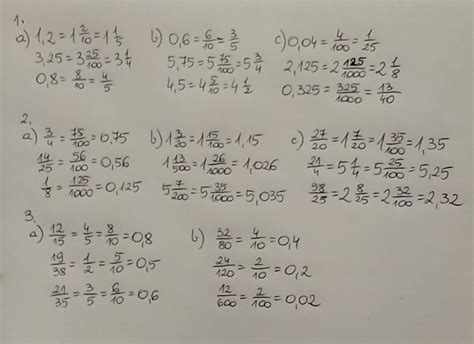 1.
a) 1,2 = 1 2/10 = 1 1/5
3,25 = 3 25/100 = 3 1/4
0,8 = 8/10 = 4/5
b) 0,6 = 6/10 = 3/5
5,75 = 5 75/100 = 5 3/4
4,5 = 4 5/10 = 4 1/2
c) 0,04 = 4/100 = 1/25
2,125 = 2 125/1000 = 2 1/8
0,325 = 325/1000 = 13/40
2.
a) 3/4 = 75/100 = 0,75
14/25 = 56/100 = 0,56
1/8 = 125/1000 = 0,125
b) 1 3/20 = 1 15/100 = 1,15
1 13/500 = 1 26/1000 = 1,026
5 7/200 = 5 35/1000 = 5,035
c) 27/20 = 1 7/20 = 1 35/100 = 1,35
21/4 = 5 1/4 = 5 25/100 = 5,25
58/25 = 2 8/25 = 2 32/100 = 2,32
3.
a) 12/15 = 4/5 = 8/10 = 0,8
19/38 = 1/2 = 5/10 = 0,5
21/35 = 3/5 = 6/10 = 0,6
b) 32/80 = 4/10 = 0,4
24/120 = 2/10 = 0,2
12/600 = 2/100 = 0,02